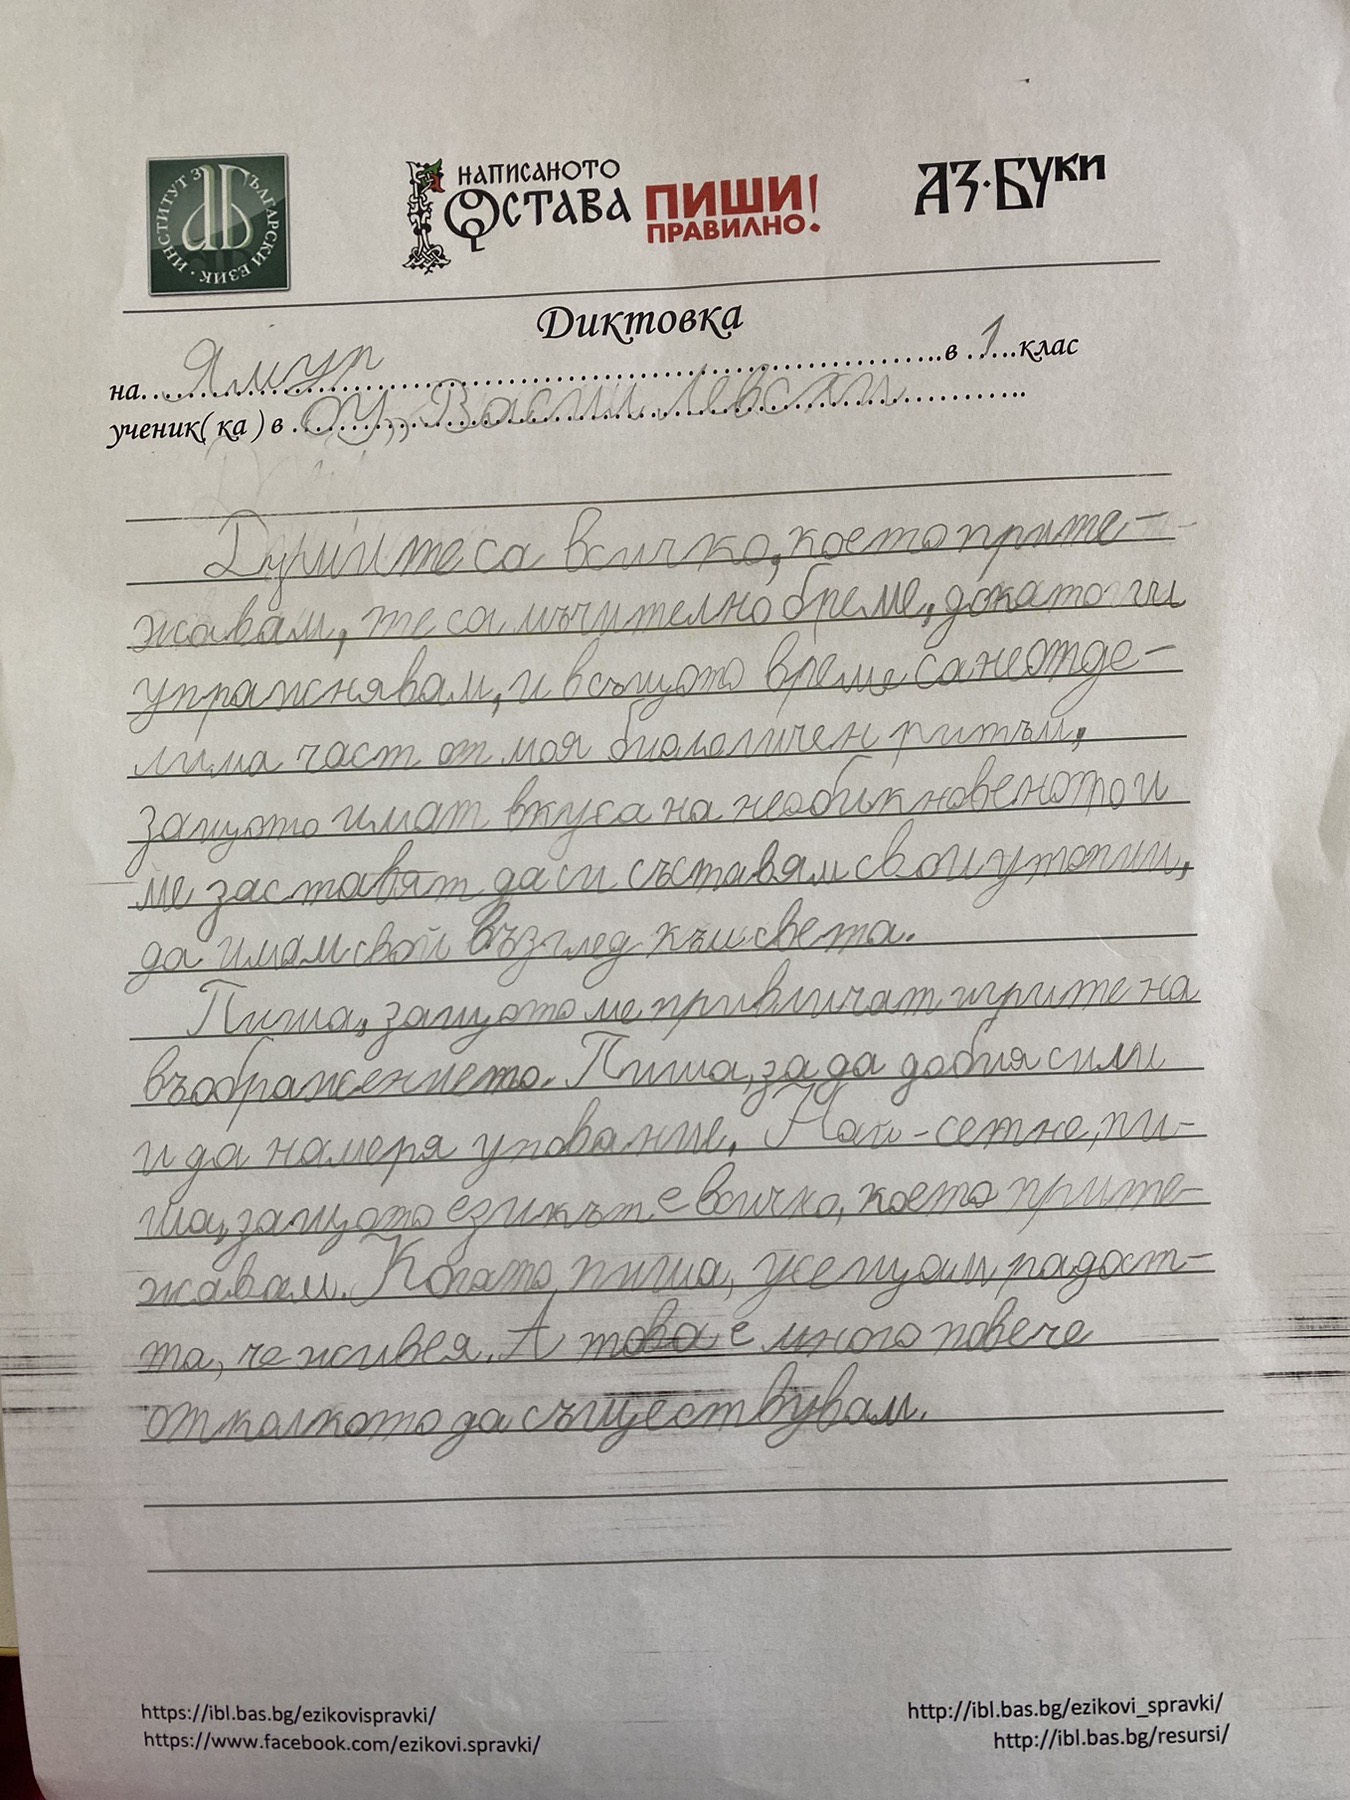 ИНСТИТУТ ЗА БЪЛГАРСКИ ЕЗИК
НАПИСАНОТО
ОСТАВА
ПИШИ
ПРАВИЛНО!
АЗ·БУКИ
Диктовка
на Ямур в 1 клас
ученик(ка) в ОУ „Васил Левски
Думите са всичко, което прите-
жавам, те са мъчително бреме, докато ги
упражнявам, и в същото време са неотде-
лима част от моя биологичен ритъм,
защото имат вкуса на необикновеното и
ме заставят да си съставям свои утопии,
да имам свой възглед към света.
Пиша, защото ме привличат игрите на
въображението. Пиша, за да добия сили
и да намеря упование. Най-сетне, пи-
ша, защото езикът е всичко, което прите-
жавам. Когато пиша, усещам радост-
та, че живея. А това е много повече
отколкото да съществувам.
https://ibl.bas.bg/ezikovispravki/
http://ibl.bas.bg/ezikovi_spravki/
https://www.facebook.com/ezikovi.spravki/
http://ibl.bas.bg/resursi/